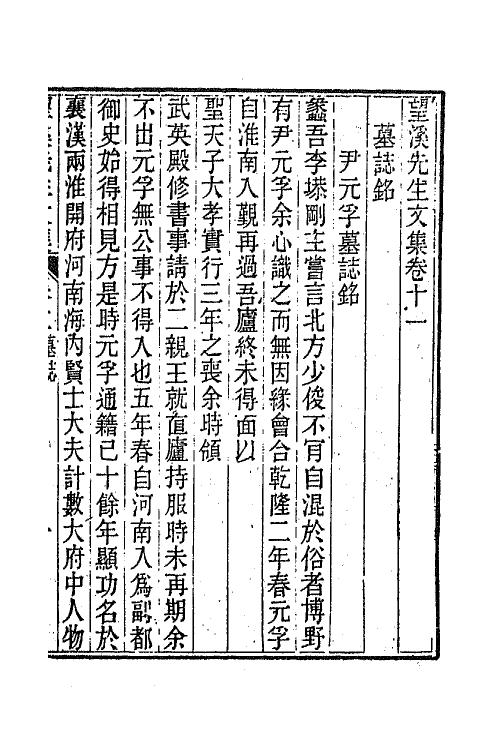 望溪先生文集卷十一
墓誌銘
尹元孚墓誌銘
蠡吾李塨剛主嘗言北方少俊不肎自混於俗者博野
有尹元孚余心識之而無因緣會合乾隆二年春元孚
自淮南入覲再過吾廬終未得面以
聖天子大孝實行三年之喪余時領
武英殿修書事請於二親王就直廬持服時未再期余
不出元孚無公事不得入也五年春自河南入爲副都
御史始得相見方是時元孚通籍已十餘年顯功名於
襄漢兩淮開府河南海內賢士大夫計數大府中人物
墓誌